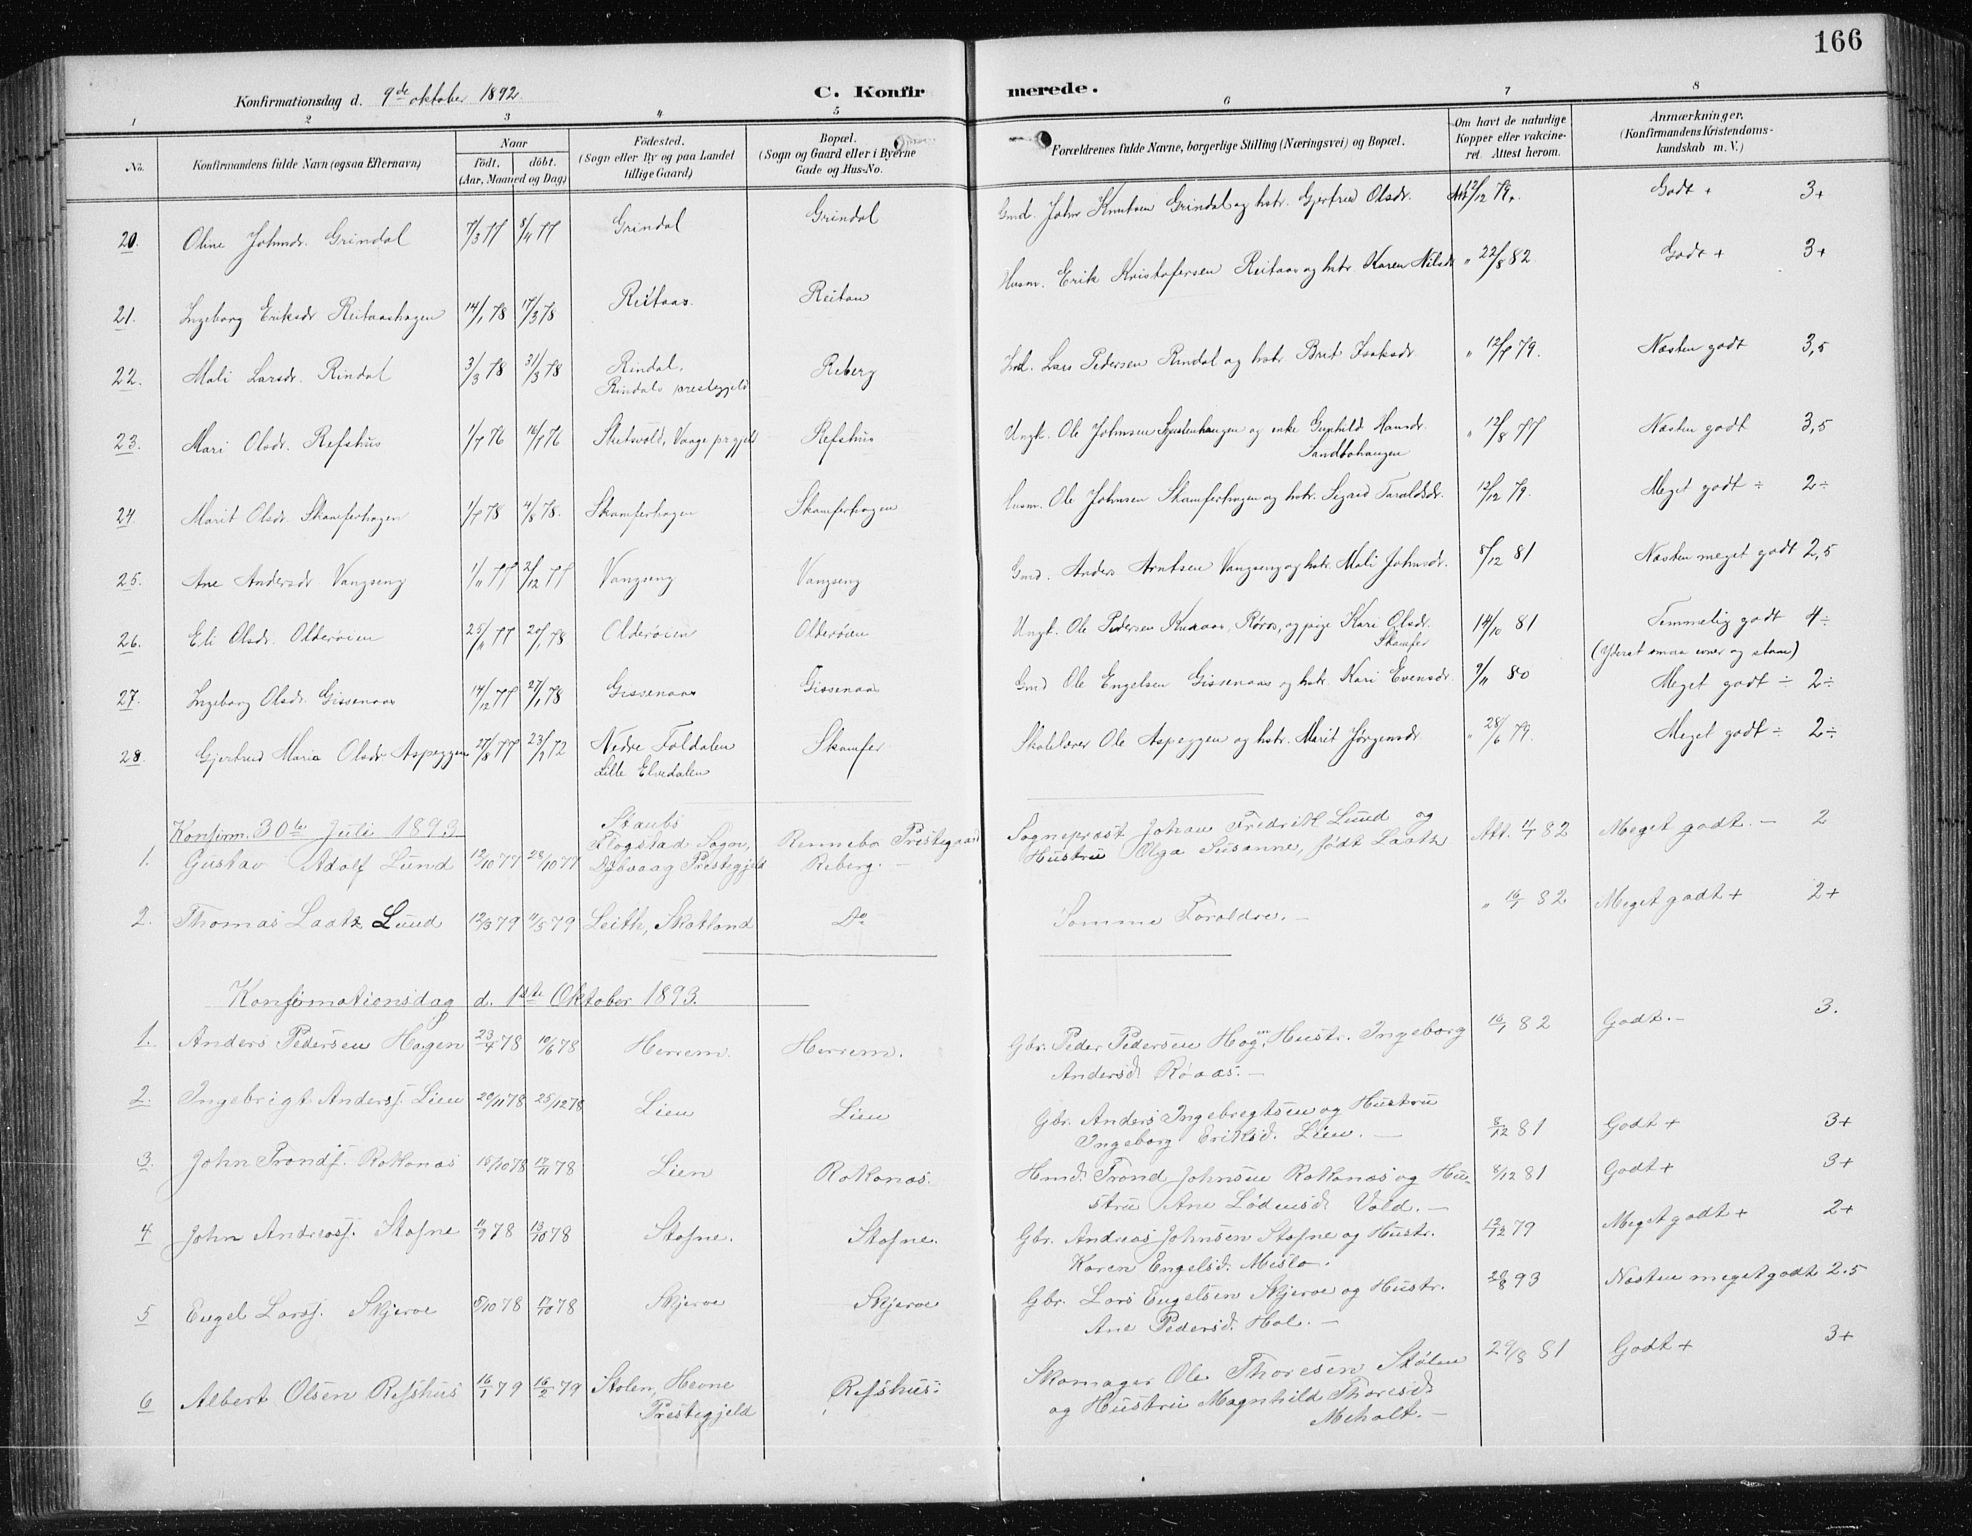 166
Konfirmationsdag d. 9de oktober 1892.
C. Konfirmerede.
1 2 3 4 5 6 7 8
No.
Konfirmandens fulde Navn (ogsaa Efternavn)
Naar
født. døbt.
(Aar, Maaned og Dag)
Fødested.
(Sogn eller By og paa Landet
tillige Gaard)
Bopæl.
(Sogn og Gaard eller i Byerne
Gade og Hus-No.
Forældrenes fulde Navne, borgerlige Stilling (Næringsvei) og Bopæl.
Om havt de naturlige
Kopper eller vakcine-
ret. Attest herom.
Anmærkninger.
(Konfirmandens Kristendoms-
kundskab m. V.)
20. Oline Johnsdr. Grindal 7/3 77 8/4 77 Grindal Grindal Gmd. John Knutsen Grindal og hstr. Gjertrud Olsdr. Att 12/12 79. Godt + 3+
21. Ingeborg Eriksdr. Reitaashagen 14/1 78 17/3 78 Reitaas Reitaas Husm. Erik Kristofersen Reitaas og hstr. Karen Nilsdr. " 22/8 82 Godt + 3+
22. Mali Larsdr. Rindal 3/3 78 31/3 78 Rindal, Reberg Lars Pedersen Rindal og hstr. Brit Isaksdr. " 12/8 79. Næsten godt 3,5
Rindals prestegjeld
23. Mari Olsdr. Refshus 1/7 76 16/7 76 Vaage prgjeld Refshus Ungk. Ole Johnsen og enke Gunhild Hansdr. " 12/8 77 Næsten godt 3,5
Sandbohaugen
24. Marit Olsdr. Skamferhagen 1/7 78 4/8 78. Skamferhagen Skamferhagen Husm. Ole Johnsen Skamferhagen og hstr. Sigrid Taraldsdr. 12/12 79. Meget godt ÷ 2÷
25. Ane Andersdr. Vangseng 1/11 77 2/12 77 Vangseng Vangseng Gmd. Anders Arntsen Vangseng og hstr. Mali Johnsdr. 8/12 81 Næsten meget godt 2,5
26. Eli Olsdr. Olderøien 25/11 77 20/1 78 Olderøien Olderøien Ungk. Ole Pedersen Knaas, Røros, og pige Kari Olsdr. 14/10 81 Temmelig godt 4÷
Skamfer
(Yderst smaa evner og stam)
27. Ingeborg Olsdr. Gissenaas 14/12 77 27/1 78 Gissenaas Gissenaas Gmd Ole Engelsen Gissenaas og hstr. Kari Evensdr. 9/11 80 Meget godt ÷ 2÷
28. Gjertrud Maria Olsdr. Aspeggen 27/8 77 23/9 72 Nedre Foldalen Skamfer Skolelærer Ole Aspeggen og hstr. Marit Jørgensdr " 28/6 79. Meget godt ÷ 2÷
Lille Elvedalen
Konfirm. 30te Juli 1893
1. Gustav Adolf Lund 12/10 77 28/10 77 Staubs Rennebo Prestegaard Sogneprest Johan Fredrik Lund og Att. 11/7 82 Meget godt. — 2
Flogstad Sogn, Reberg. Hustru Olga Susanne, født Laatz
Dybvaag Prestegjeld
2. Thomas Laatz Lund 12/3 79 11/5 79 Leith, Skotland Do Samme Foraldre. — " 16/7 82 Meget godt + 2+
Konfirmationsdag d. 1ste Oktober 1893.
1. Anders Pedersen Hagen 23/4 78 10/6 78 Herrem. Herrem. Gbr. Peder Pedersen Hagen Hustr. Ingeborg 16/7 82 Godt. — 3.
Andersd. Røaas. —
2. Ingebrigt Anders. Lien 20/11 78 25/12 78 Lien Lien Gbr. Anders Ingebregtsen og Hustru 8/12 81 Godt + 3+
Ingeborg Eriksd. Lien. —
3. John Trondf. Rokonas 15/10 78 17/11 78 Lien Rokonas. Hmd. Trond Johnsen Rokonas og Hu- 8/12 81 Godt + 3+
stru Ane Lodensd. Vold. —
4 John Andreasf. Stofne 11/9 78 13/10 78 Stofne. Stofne. Gbr. Andreas Johnsen Stofne og Hustr. 12/12 79 Meget godt + 2+
Karen Engelsd. Mislo.
5 Engel Larsf. Skjerve 5/10 78 17/10 78 Skjerve Skjerve Gbr. Lars Engelsen Skjerve og Hustr. 28/8 93 Næsten meget godt 2.5
Ane Pedersd. Hol. —
6 Albert Olsen Refshus 16/1 79 16/2 79 Stolen, Hevne Refshus: Skomager Ole Thoresen Stølen 29/8 81 Godt + 3+
Prestegjeld og Hustru Magnhild Thoresd.
Meholt. —